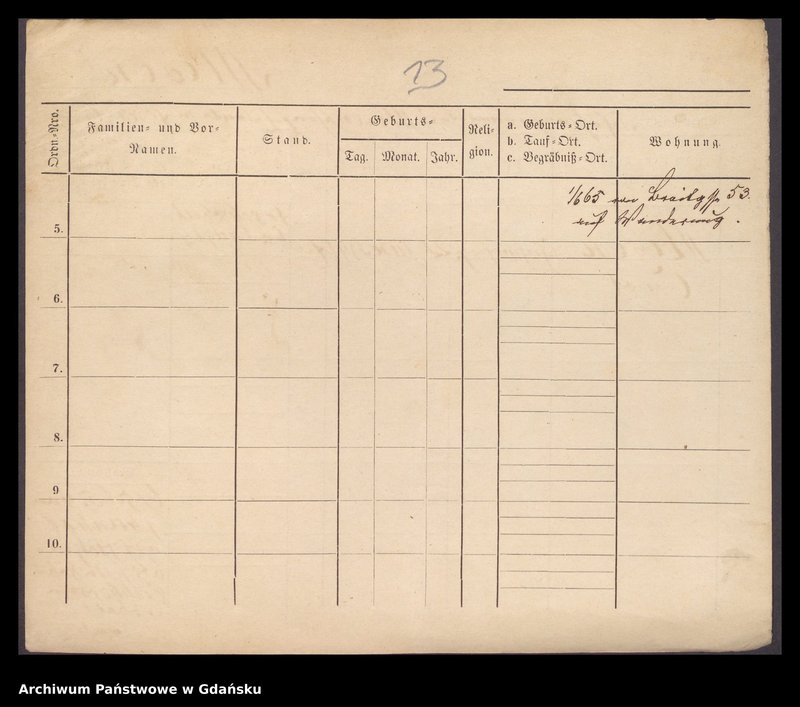 13
Ordn=Nro.
Familien= und Vor=
Namen.
Stand.
Geburts=
Tag.
Monat.
Jahr.
Reli=
gion.
a. Geburts=Ort.
b. Tauf=Ort.
c. Begräbniß=Ort.
Wohnung.
1/6 65 von Breitgss 53.
auf Wanderung.
5.
6.
7.
8.
9
10.
Archiwum Państwowe w Gdańsku